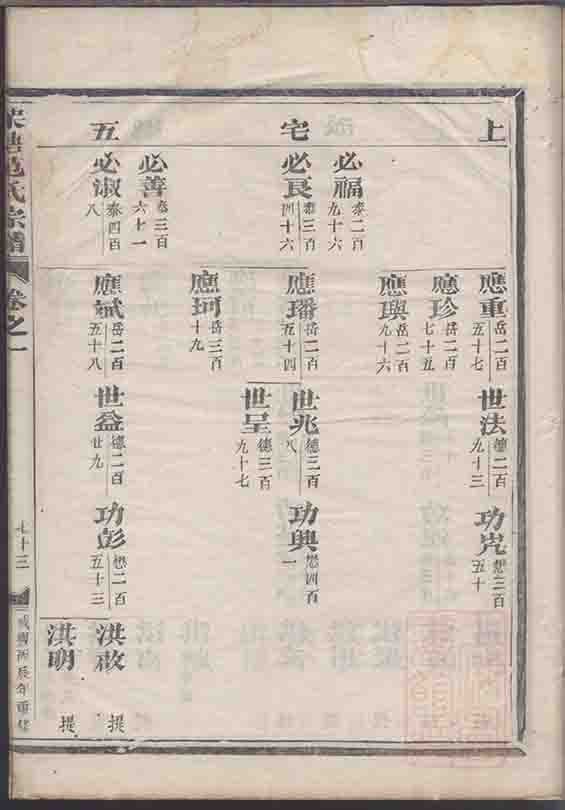 上
宅
五
必福 泰二百九十六
必良 泰三百四十六
必善 泰三百六十一
必淑 泰四百八
應重 岳二百五十七
應珍 岳二百七十五
應璵 岳二百九十六
應璠 岳二百五十四
應珂 岳三百十九
應斌 岳二百五十八
世法 德二百九十三
世兆 德三百八
世呈 德三百九十七
世益 德二百廿九
功 懋三百五十
功典 懋四百一
功彭 懋二百五十三
洪啟 提
洪明 提
范氏宗譜
卷之一
七十三
咸豐丙辰年重修